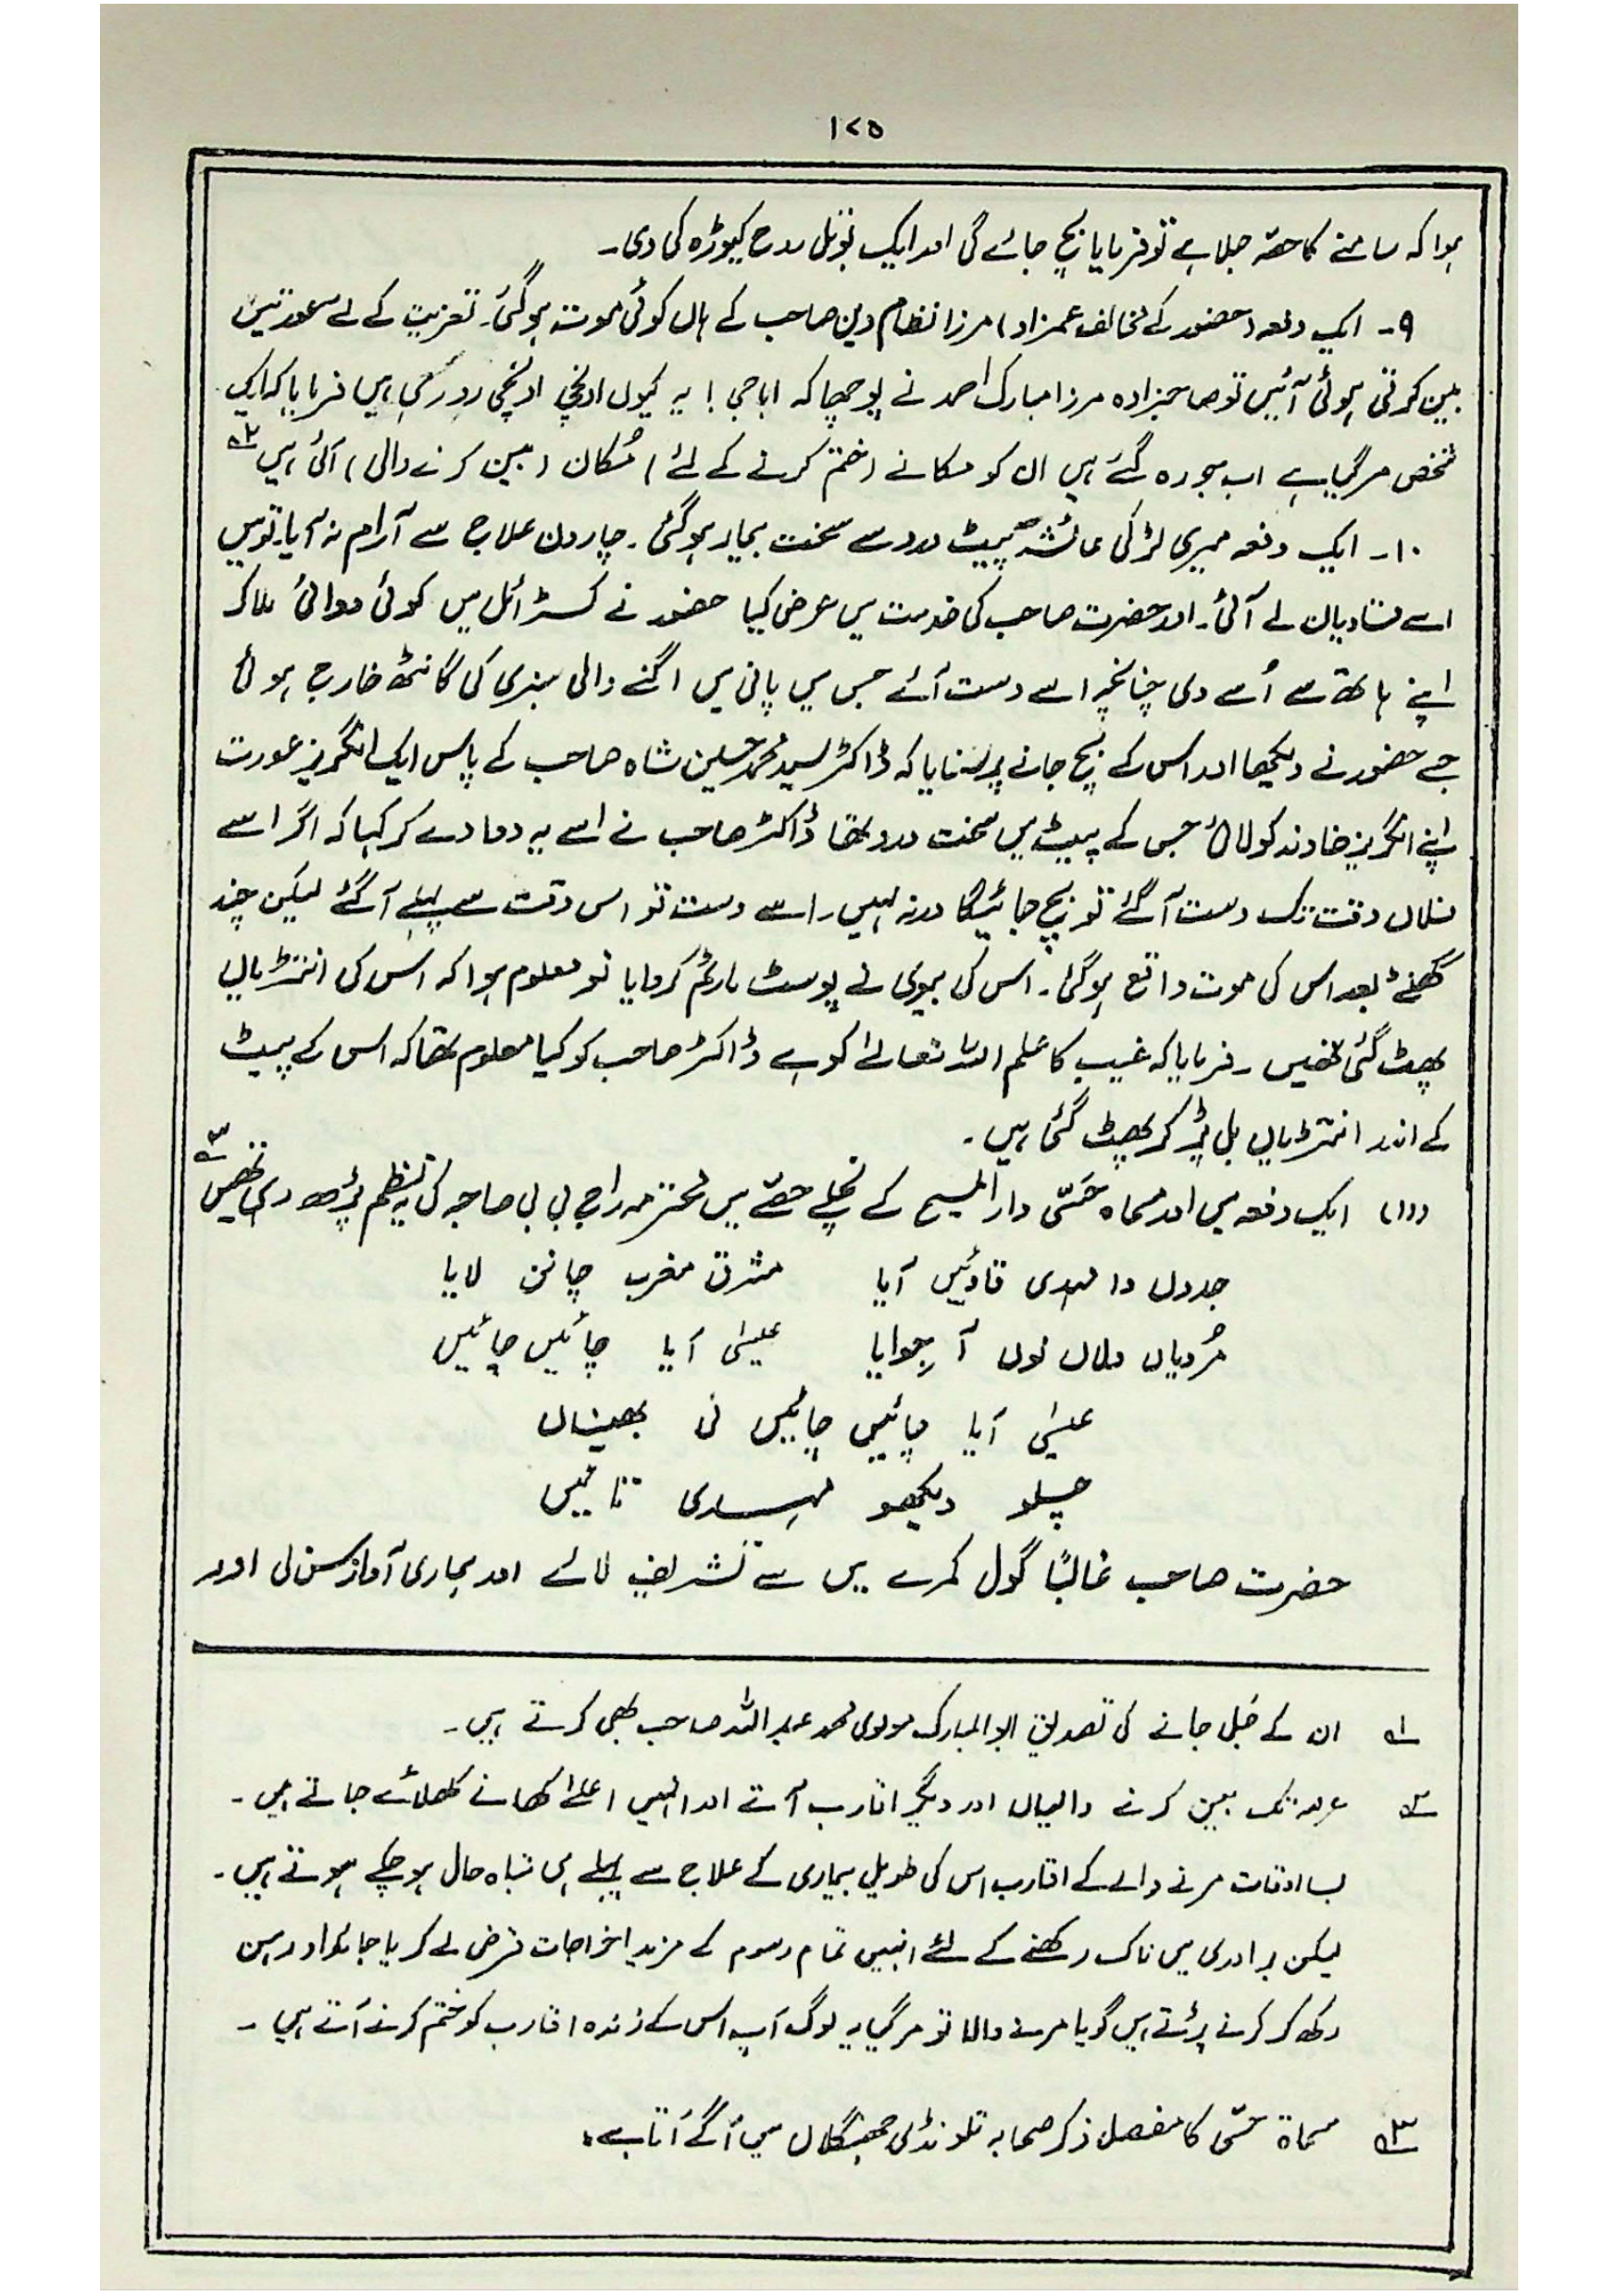 ۱۷۵
ہوا کہ سامنے کا حصہ جلا ہے تو فرمایا بچ جائے گی اور ایک بوتل روح کیوڑہ کی دی۔
۹۔ ایک دفعہ (حضور کے مخالف عمزاد) مرزا نظام دین صاحب کے ہاں کوئی موت ہو گئی۔ تعزیت کے لئے عورتیں
بین کرتی ہوئی آئیں تو صاحبزادہ مرزا مبارک احمد نے پوچھا کہ ابا جی! یہ کیوں اونچی اونچی رو رہی ہیں فرمایا کہ ایک
شخص مر گیا ہے اب جو رہ گئے ہیں ان کو مکانے (ختم کرنے کے لئے) مُکان (بین کرنے والی) آئی ہیں ۲؎
۱۰۔ ایک دفعہ میری لڑکی عائشہ پیٹ درد سے سخت بیمار ہو گئی۔ چار دن علاج سے آرام نہ آیا۔ تو میں
اسے قادیان لے آئی۔ اور حضرت صاحب کی خدمت میں عرض کیا حضور نے کسٹر ائل میں کوئی دوائی ملا کر
اپنے ہاتھ سے اُسے دی چنانچہ اسے دست آئے جس میں پانی میں اگنے والی سبزی کی گانٹھ خارج ہوئی
جسے حضور نے دیکھا اور اس کے بچ جانے پر سنایا کہ ڈاکٹر سید محمد حسین شاہ صاحب کے پاس ایک انگریز عورت
اپنے انگریز خاوند کو لائی جس کے پیٹ میں سخت درد تھا ڈاکٹر صاحب نے اسے یہ دوا دے کر کہا کہ اگر اسے
فلاں وقت تک دست آ گئے تو بچ جائیگا ورنہ نہیں۔ اسے دست تو اس وقت سے پہلے آ گئے لیکن چند
گھنٹے بعد اس کی موت واقع ہو گئی۔ اس کی بیوی نے پوسٹ مارٹم کروایا تو معلوم ہوا کہ اس کی انتڑیاں
پھٹ گئی تھیں۔ فرمایا کہ غیب کا علم اللہ تعالےٰ کو ہے ڈاکٹر صاحب کو کیا معلوم تھا کہ اس کے پیٹ
کے اندر انتڑیاں بل پڑ کر پھٹ گئی ہیں۔
(۱۱) ایک دفعہ میں اور مسماہ حَسّی دار المسیح کے نچلے حصے میں محترمہ راج بی بی صاحبہ کی یہ نظم پڑھ رہی تھیں ۳؎
جدوں دا مہدی قادئیں آیا مشرق مغرب چانن لایا
مُردیاں دلاں نوں آ جوایا عیسٰی آیا چائیں چائیں
عیسٰی آیا چائیں چائیں نی بھیناں
چلو دیکھو مہدی تائیں
حضرت صاحب غالباً گول کمرے میں سے تشریف لائے اور ہماری آواز سن لی اور
۱؎ ان کے جل جانے کی تصدیق ابو المبارک مولوی محمد عبد اللہ صاحب بھی کرتے ہیں۔
۲؎ عرصہ تک بین کرنے والیاں اور دیگر اقارب آتے اور انہیں اعلےٰ کھانے کھلائے جاتے ہیں۔
بسا اوقات مرنے والے کے اقارب اس کی طویل بیماری کے علاج سے پہلے ہی تباہ حال ہو چکے ہوتے ہیں۔
لیکن برادری میں ناک رکھنے کے لئے انہیں تمام رسوم کے مزید اخراجات قرض لے کر یا جائداد رہن
رکھ کر کرنے پڑتے ہیں گویا مرنے والا تو مر گیا یہ لوگ آپ اس کے زندہ اقارب کو ختم کرنے آتے ہیں۔
۳؎ مسماۃ حسّی کا مفصل ذکر صحابہ تلونڈی جھنگلاں میں آگے آتا ہے۔